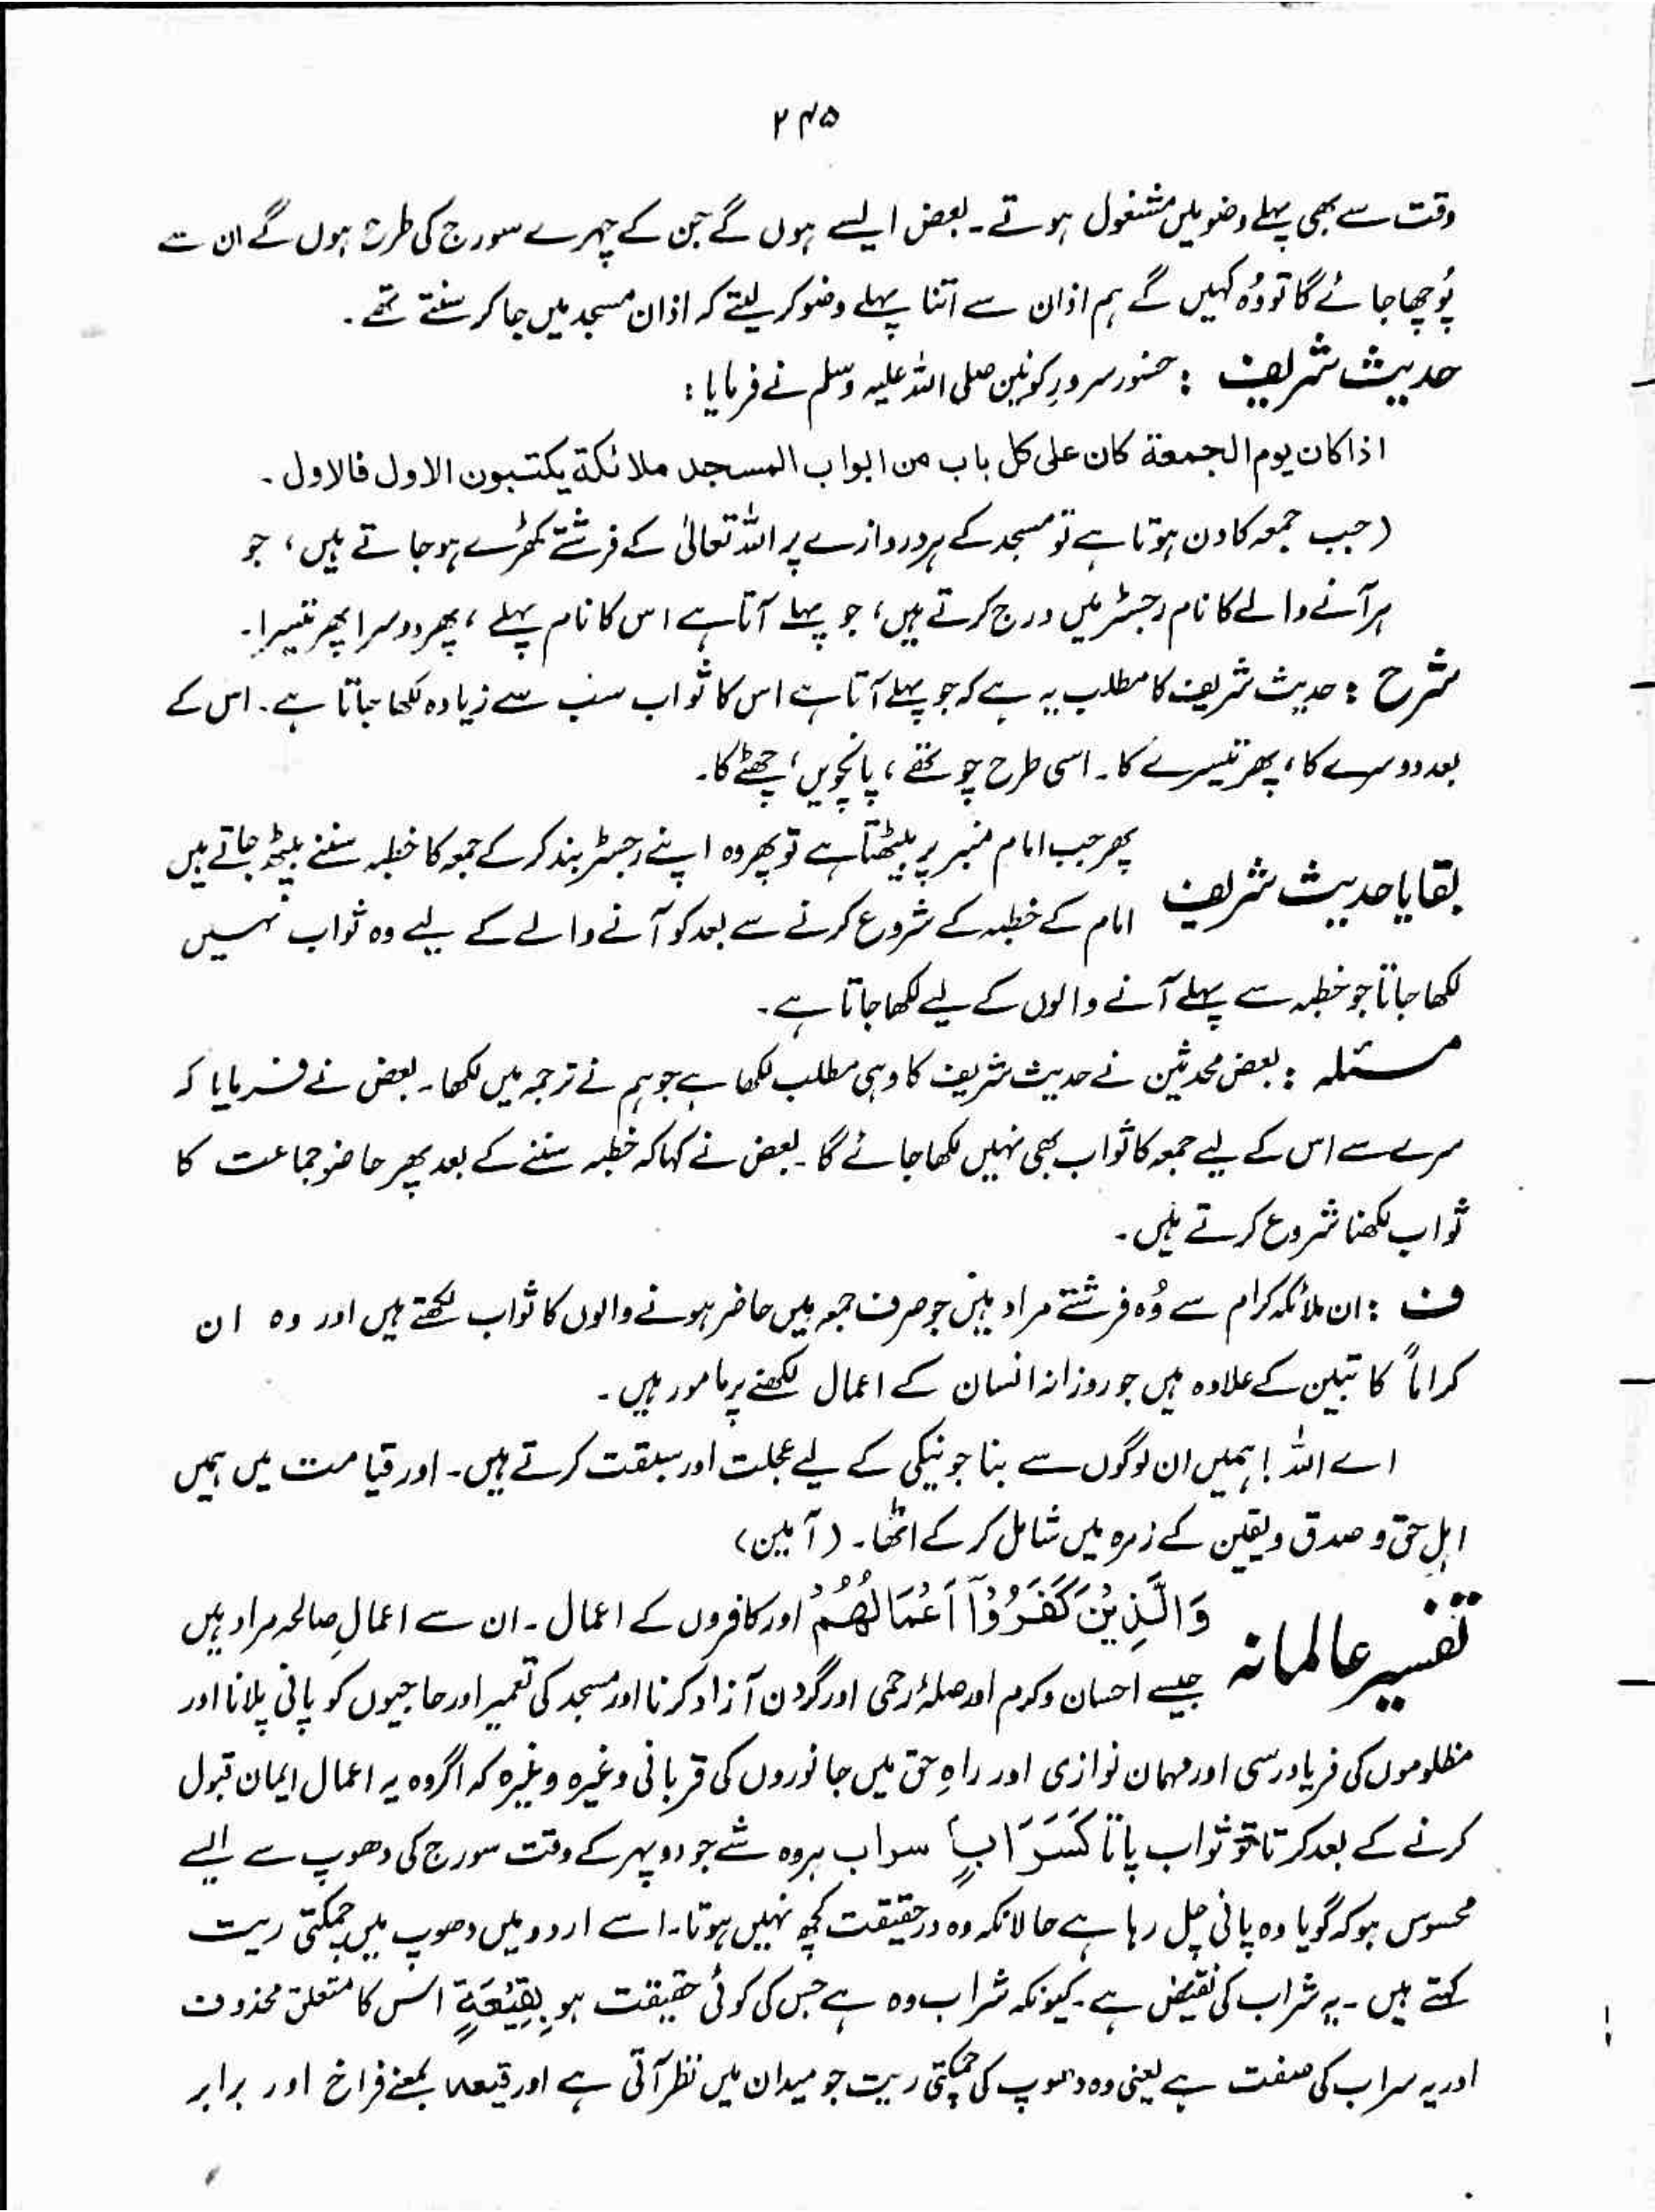 ۲۴۵
وقت سے بھی پہلے وضو میں مشغول ہوتے۔ بعض ایسے ہوں گے جن کے چہرے سورج کی طرح ہوں گے ان سے
پُوچھا جائے گا تو وُہ کہیں گے ہم اذان سے اتنا پہلے وضو کر لیتے کہ اذان مسجد میں جا کر سنتے تھے۔
حدیث شریف : حضور سرورِ کونین صلی اللہ علیہ وسلم نے فرمایا :
اذا کان یوم الجمعة کان علی کل باب من ابواب المسجد ملائکة یکتبون الاول فالاول۔
(جب جمعہ کا دن ہوتا ہے تو مسجد کے ہر دروازے پر اللہ تعالیٰ کے فرشتے کھڑے ہو جاتے ہیں، جو
ہر آنے والے کا نام رجسٹر میں درج کرتے ہیں، جو پہلے آتا ہے اس کا نام پہلے ، پھر دوسرا پھر تیسرا۔
شرح : حدیث شریف کا مطلب یہ ہے کہ جو پہلے آتا ہے اس کا ثواب سب سے زیادہ لکھا جاتا ہے۔ اس کے
بعد دوسرے کا، پھر تیسرے کا۔ اسی طرح چوتھے ، پانچویں، چھٹے کا۔
بقایا حدیث شریف پھر جب امام منبر پر بیٹھتا ہے تو پھر وہ اپنے رجسٹر بند کر کے جمعہ کا خطبہ سننے بیٹھ جاتے ہیں
امام کے خطبہ کے شروع کرنے سے بعد کو آنے والے کے لیے وہ ثواب نہیں
لکھا جاتا جو خطبہ سے پہلے آنے والوں کے لیے لکھا جاتا ہے۔
مسئلہ : بعض محدثین نے حدیث شریف کا وہی مطلب لکھا ہے جو ہم نے ترجمہ میں لکھا۔ بعض نے فرمایا کہ
سرے سے اس کے لیے جمعہ کا ثواب بھی نہیں لکھا جائے گا۔ بعض نے کہا کہ خطبہ سننے کے بعد پھر حاضرِ جماعت کا
ثواب لکھنا شروع کرتے ہیں۔
ف : ان ملائکہ کرام سے وُہ فرشتے مراد ہیں جو صرف جمعہ میں حاضر ہونے والوں کا ثواب لکھتے ہیں اور وہ ان
کراماً کاتبین کے علاوہ ہیں جو روزانہ انسان کے اعمال لکھنے پر مامور ہیں۔
اے اللہ ! ہمیں ان لوگوں سے بنا جو نیکی کے لیے عجلت اور سبقت کرتے ہیں۔ اور قیامت میں ہمیں
اہلِ حق و صدق و یقین کے زمرہ میں شامل کر کے اٹھا۔ (آمین)
تفسیر عالمانہ وَالَّذِیْنَ کَفَرُوْٓا اَعْمَالُهُمْ اور کافروں کے اعمال۔ ان سے اعمالِ صالحہ مراد ہیں
جیسے احسان و کرم اور صلۂ رحمی اور گردن آزاد کرنا اور مسجد کی تعمیر اور حاجیوں کو پانی پلانا اور
مظلوموں کی فریاد رسی اور مہمان نوازی اور راہِ حق میں جانوروں کی قربانی وغیرہ وغیرہ کہ اگر وہ یہ اعمال ایمان قبول
کرنے کے بعد کرتا تو ثواب پاتا کَسَرَابٍ سراب ہر وہ شے جو دوپہر کے وقت سورج کی دھوپ سے ایسے
محسوس ہو کہ گویا وہ پانی چل رہا ہے حالانکہ وہ درحقیقت کچھ نہیں ہوتا۔ اسے اردو میں دھوپ میں چمکتی ریت
کہتے ہیں۔ یہ شراب کی نقیض ہے۔ کیونکہ شراب وہ ہے جس کی کوئی حقیقت ہو بِقِیْعَةٍ اس کا متعلق محذوف
اور یہ سراب کی صفت ہے یعنی وہ دھوپ کی چمکتی ریت جو میدان میں نظر آتی ہے اور قیعہ بمعنے فراخ اور برابر